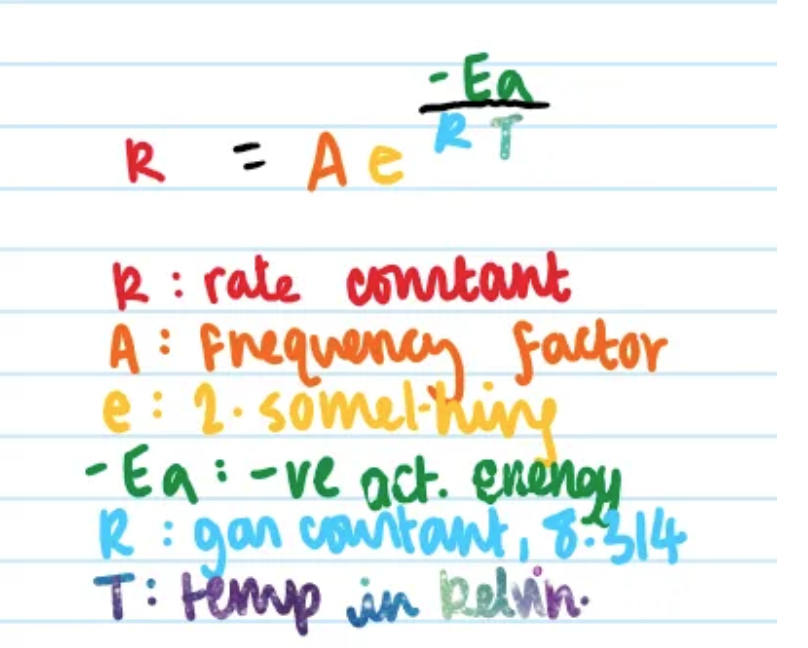 -Ea
k = A e R T
k : rate constant
A : frequency factor
e : 2.something
-Ea : -ve act. energy
R : gas constant, 8.314
T : temp in kelvin.